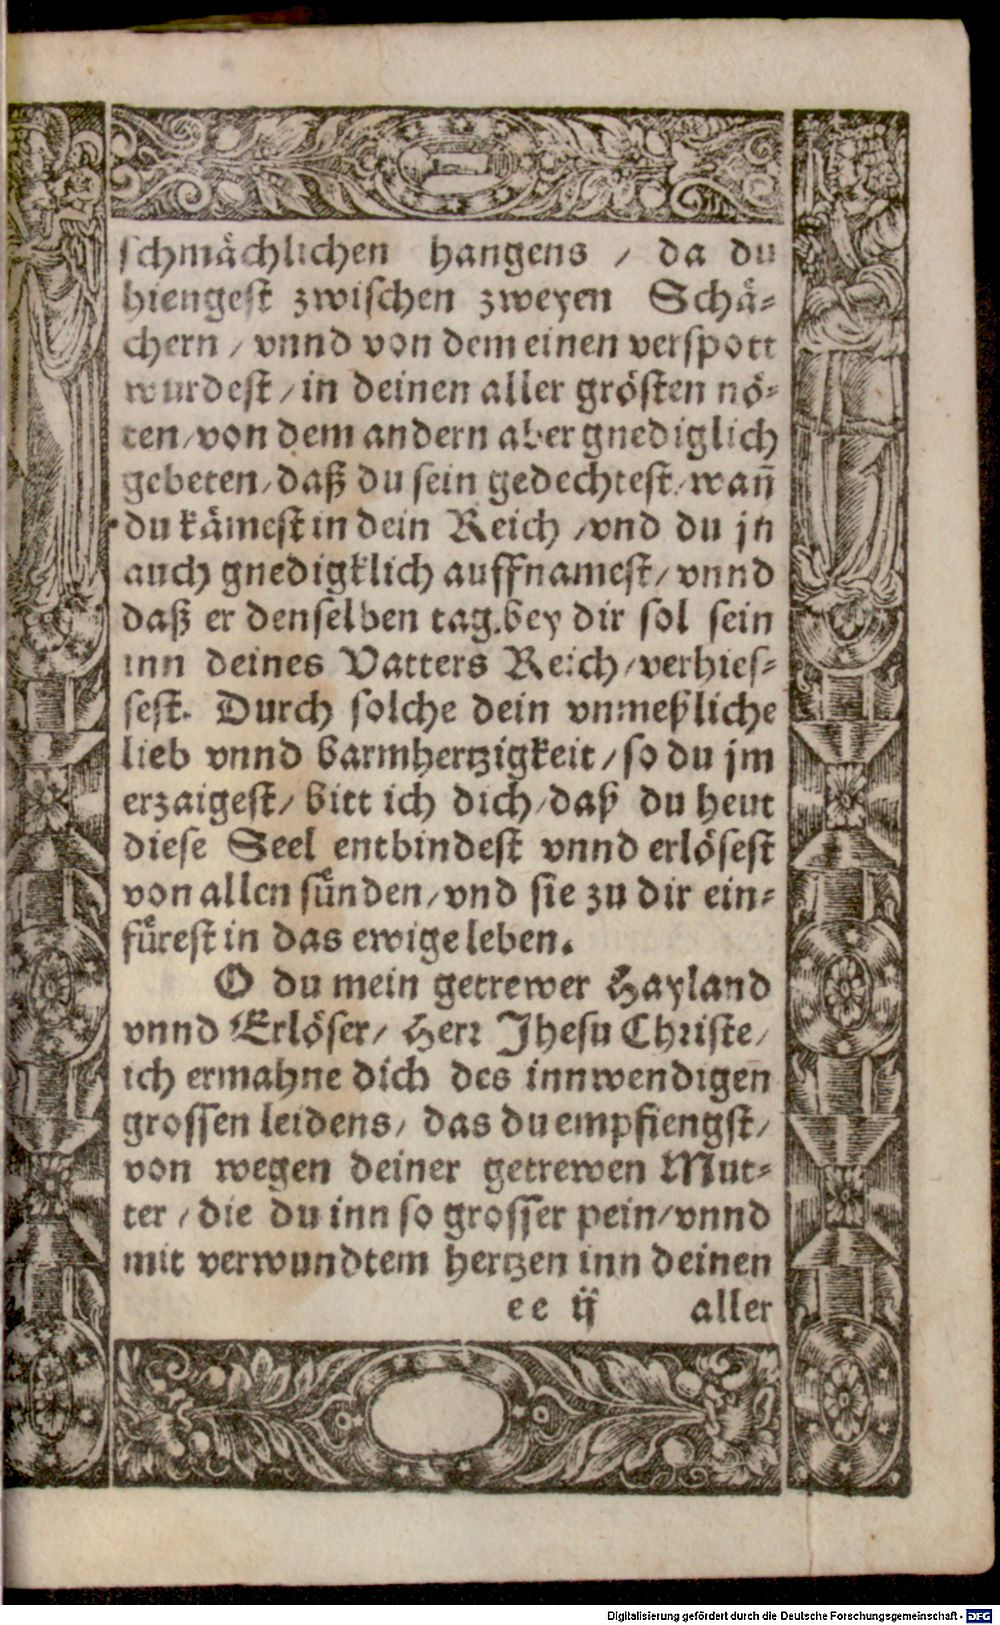 schmächlichen hangens / da du
hiengest zwischen zweyen Schä-
chern / vnnd von dem einen verspott
wurdest / in deinen aller grösten nö-
ten / von dem andern aber gnediglich
gebeten / daß du sein gedechtest / wañ
du kämest in dein Reich / vnd du jn
auch gnedigklich auffnamest / vnnd
daß er denselben tag. bey dir sol sein
inn deines Vatters Reich / verhies-
sest. Durch solche dein vnmeßliche
lieb vnnd barmhertzigkeit / so du jm
erzaigest / bitt ich dich / daß du heut
diese Seel entbindest vnnd erlösest
von allen sünden / vnd sie zu dir ein-
fürest in das ewige leben.
O du mein getrewer Hayland
vnnd Erlöser / Herr Jhesu Christe /
ich ermahne dich des innwendigen
grossen leidens / das du empfiengst /
von wegen deiner getrewen Mut-
ter / die du inn so grosser pein / vnnd
mit verwundtem hertzen inn deinen
ee ij aller
Digitalisierung gefördert durch die Deutsche Forschungsgemeinschaft - DFG